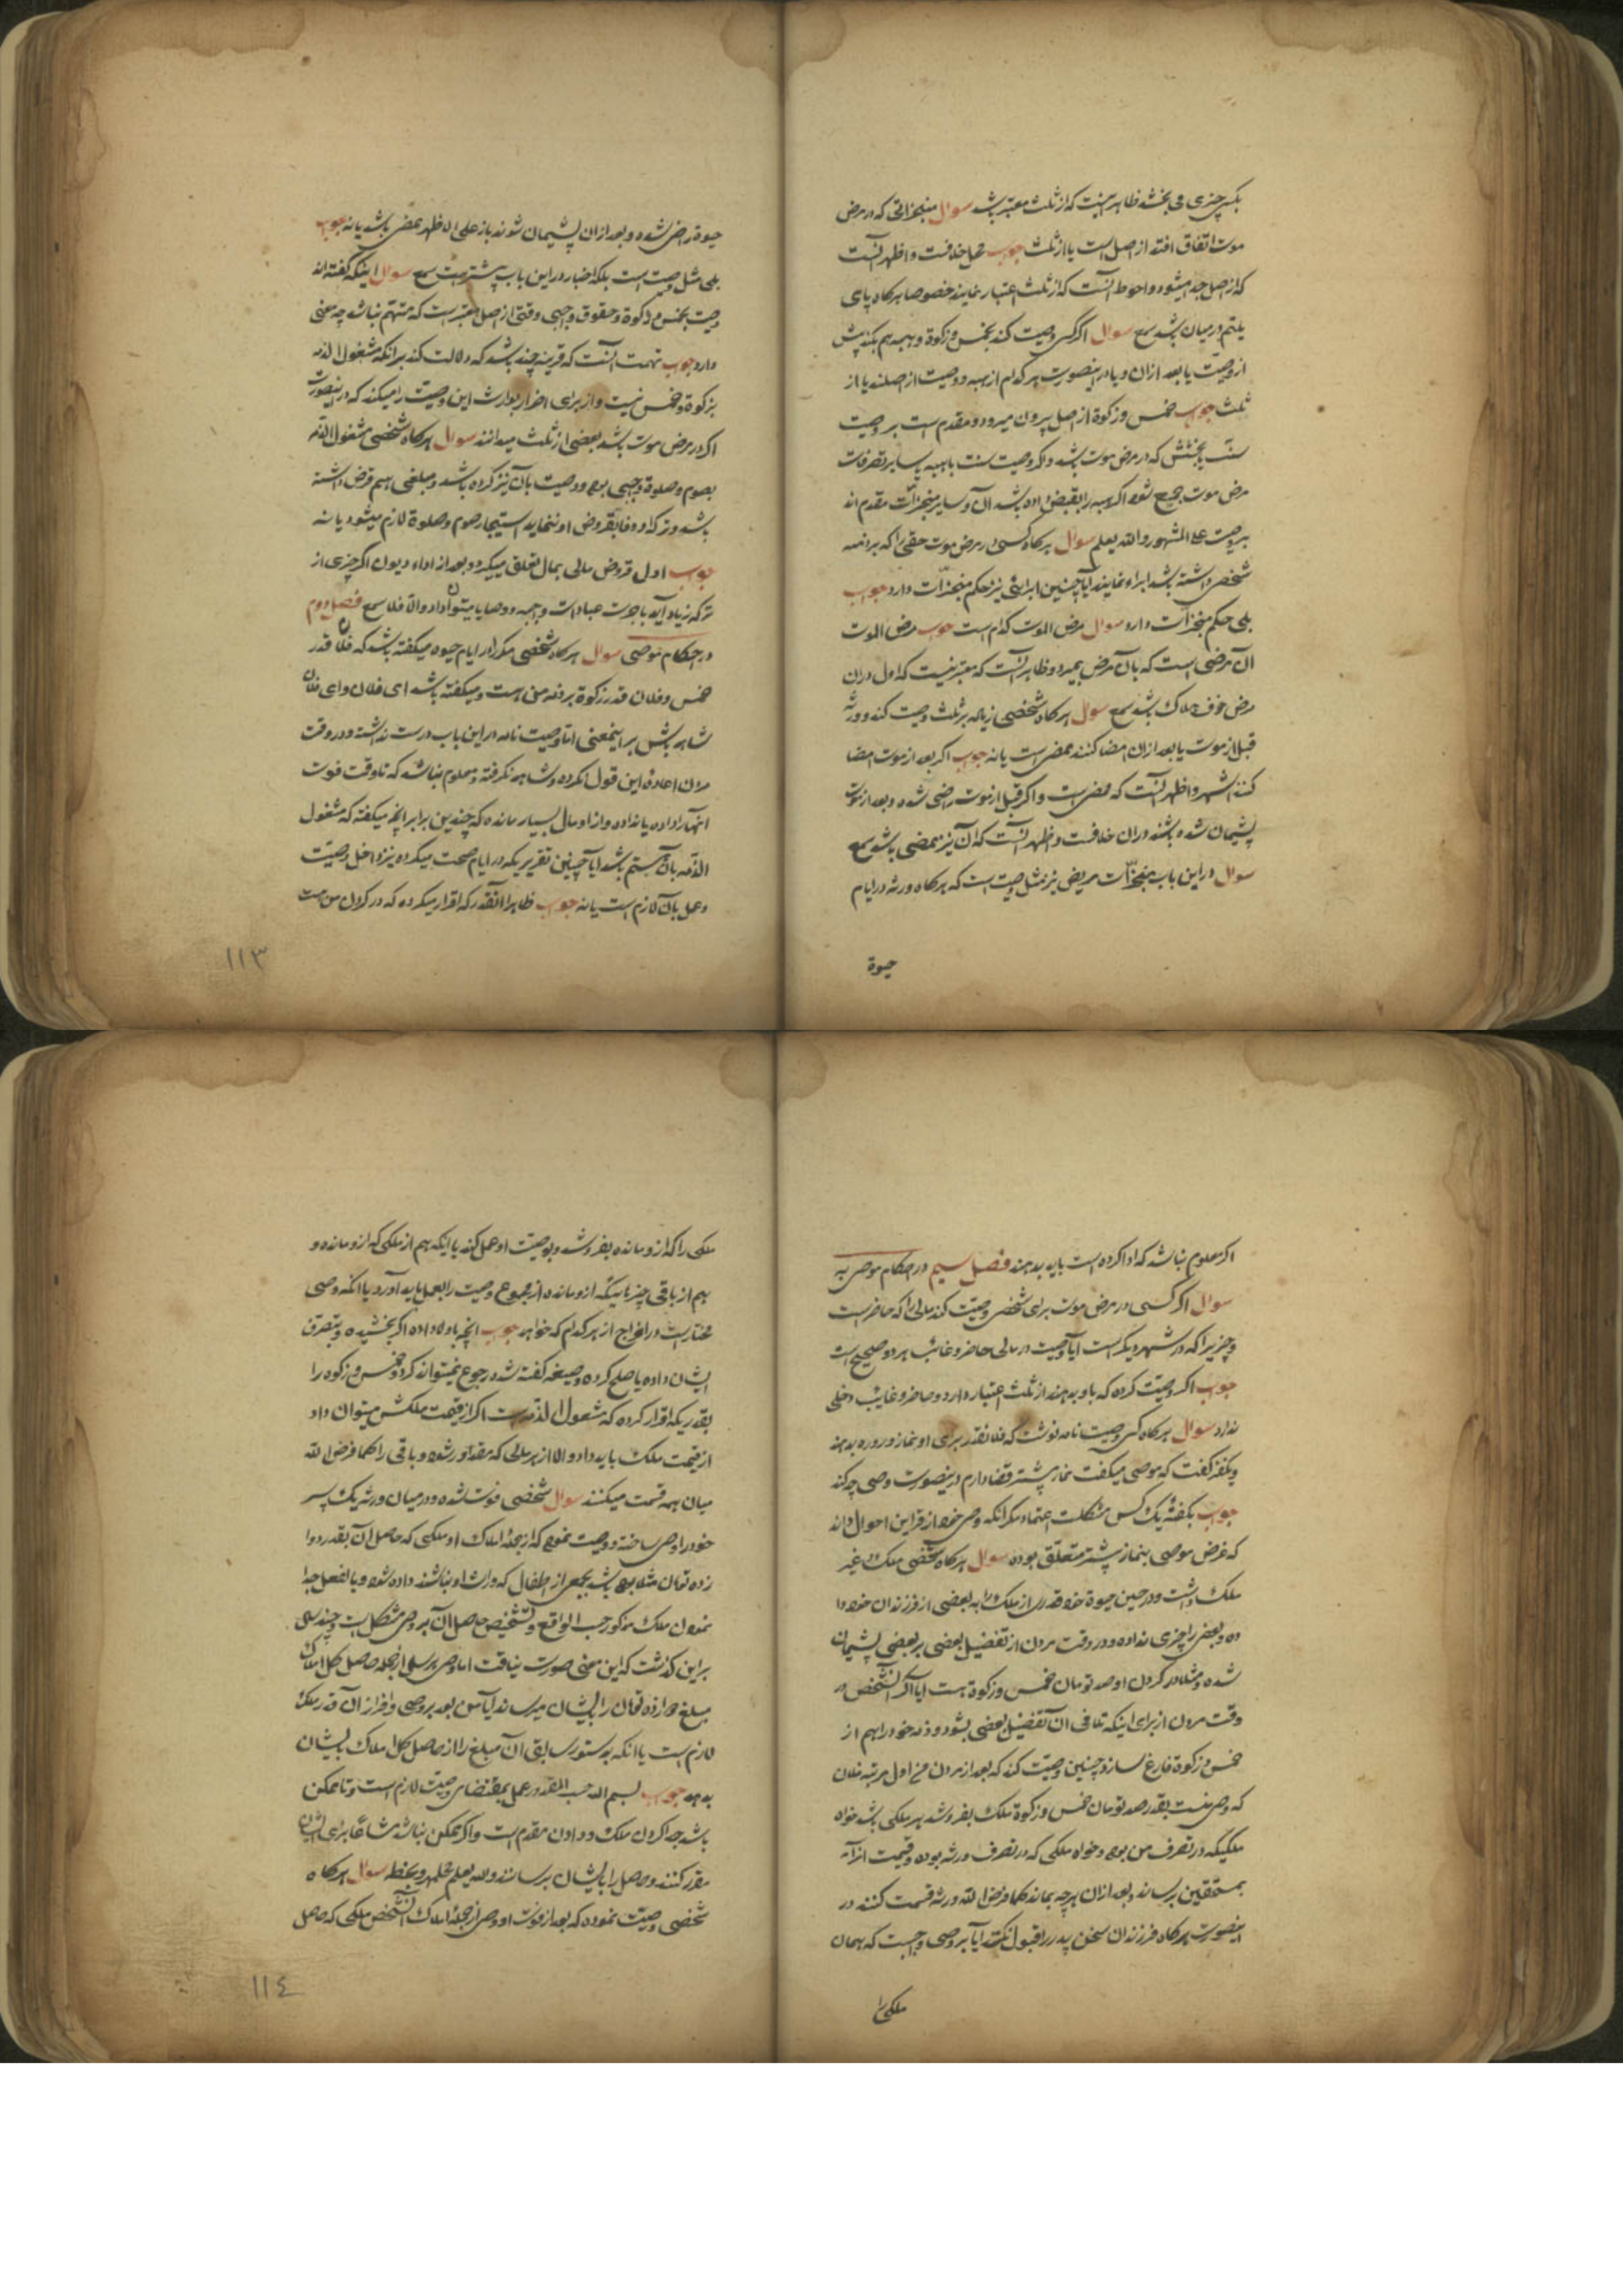 بکسی چیزی می بخشد ظاهر اینست که از ثلث معتبر باشد سوال منجزاتی که در مرض
موت اتفاق افتد از اصل است یا از ثلث جواب محل خلافست و اظهر آنست
که از اصل جدا میشود و احوط آنست که از ثلث اعتبار نمایند خصوصا هرکاه پای
یتیم در میان باشد سمع سوال اکر کسی وصیت کند بخمس و زکوة و هبه هم بکند پیش
از وصیت یا بعد از ان و یا در اینصورت هر کدام از هبه و وصیت از اصلند یا از
ثلث جواب خمس و زکوة از اصل بیرون میرود و مقدم است بر وصیت
سنت بخشش که در مرض موت باشد و اکر وصیت سنت با هبه یا سایر تصرفات
مرض موت جمع شود اکر هبه را بقبض داده باشد آن و سایر منجزات مقدم اند
بر وصیت علی المشهور والله یعلم سوال هرکاه کسی در مرض موت حقی را که بر ذمه
شخصی داشته باشد ابراء نماید آیا چنین ابرائی نیز حکم منجزات دارد جواب
بلی حکم منجزات دارد سوال مرض الموت کدام است جواب مرض الموت
آن مرضی است که بآن مرض بمیرد و ظاهر آنست که معتبر نیست که اول در ان
مرض خوف هلاک باشد سمع سوال هرکاه شخصی زیاده بر ثلث وصیت کند و ورثه
قبل از موت یا بعد از ان امضا کنند ممضی است یا نه جواب اکر بعد از موت امضا
کنند اشهر و اظهر آنست که ممضی است و اکر قبل از موت راضی شده و بعد از موت
پشیمان شده باشند در ان خلافست و اظهر آنست که آن نیز ممضی باشد سمع
سوال در این باب منجزات مریض نیز مثل وصیت است که هرکاه ورثه در ایام
حیوة
حیوة راضی شده و بعد از ان پشیمان شوند باز علی الاظهر ممضی باشد یا نه جواب
بلی مثل وصیت است بلکه اخبار در این باب پیشتر است سمع سوال اینکه کفته اند
وصیت بخمس و زکوة و حقوق واجبی وقتی از اصل معتبر است که متهم نباشد چه معنی
دارد جواب تهمت آنست که قرینه چند باشد که دلالت کند بر انکه مشغول الذمه
بزکوة و خمس نیست و از برای اضرار بوارث این وصیت را میکند که در اینصورت
اکر در مرض موت باشد بعضی از ثلث میدانند سوال هرکاه شخصی مشغول الذمه
بصوم و صلوة واجبی بود و وصیت بآن نیز کرده باشد و مبلغی هم قرض داشته
باشد و ترکه او وفا بقروض او ننماید استیجار صوم و صلوة لازم میشود یا نه
جواب اول قروض مالی بمال تعلق میکیرد و بعد از اداء دیون اکر چیزی از
ترکه زیاد آید باجرت عبادات واجبه و وصایا میتوان داد والا فلا سمع فصل دوم
در احکام موصی سوال هرکاه شخصی مکرر در ایام حیوة میکفته باشد که فلان قدر
خمس و فلان قدر زکوة بر ذمه من است و میکفته باشد ای فلان و ای فلان
شاهد باش بر اینمعنی اما وصیت نامه در این باب درست نداشته و در وقت
مردن اعاده این قول نکرده و شاهد نکرفته و معلوم نباشد که تا وقت فوت
انها را داده یا نداده و از او مال بسیار مانده که چندین برابر انچه میکفته که مشغول
الذمه بآن هستم باشد ایا چنین تقریر یکه در ایام صحت میکرده نیز داخل وصیت
و عمل بآن لازم است یا نه جواب ظاهرا انقدر که اقرار میکرده که در کردن من است
۱۱۳
اکر معلوم نباشد که ادا کرده است باید بدهند فصل سیم در احکام موصی به
سوال اکر کسی در مرض موت برای شخصی وصیت کند مالی را که حاضر است
و چیزیرا که در شهر دیکر است ایا وصیت در مالی حاضر و غائب هر دو صحیح است
جواب اکر وصیت کرده که باو بدهند از ثلث اعتبار دارد و حاضر و غائب دخلی
ندارد سوال هرکاه کسی وصیت نامه نوشت که فلانقدر برای او نماز و روزه بدهند
و یکنفر کفت که موصی میکفت نماز پیشتر قضا دارم در ینصورت وصی چه کند
جواب بکفته یک کس مشکلست اعتماد مکر انکه وصی خود از قراین احوال داند
که غرض موصی بنماز پیشتر متعلق بوده سوال هرکاه شخصی ملک و غیر
ملک داشت و در حین حیوة خود قدری از ملک را به بعضی از فرزندان خود دا
ده و بعضی را چیزی نداده و در وقت مردن از تفضیل بعضی بر بعضی پشیمان
شده و مثلا در کردن او صد تومان خمس و زکوة هست ایا اکر آنشخص در
وقت مردن از برای اینکه تلافی ان تفضیل بعضی بشود و ذمه خود را هم از
خمس و زکوة فارغ سازد چنین وصیت کند که بعد از مردن من اول مرتبه فلان
که وصی منست بقدر صد تومان خمس و زکوة ملک بفروشد هر ملکی باشد خواه
ملکیکه در تصرف من بود و خواه ملکی که در تصرف ورثه بوده و قیمت انرا
بمستحقین برساند و بعد از ان هرچه بماند کما فرض الله ورثه قسمت کنند در
اینصورت هرکاه فرزندان سخن پدر را قبول نکنند ایا بر وصی واجبست که همان
ملکی را
ملکی را که از و مانده بفروشد و بوصیت او عمل کند یا اینکه هم از ملکی که از و مانده و
هم از باقی چیزهائیکه از و مانده از مجموع وصیت را بعمل باید آورد یا انکه وصی
مختار است در اخراج از هر کدام که خواهد جواب انچه باولاد داده اکر بخشیده و بتصرف
ایشان داده یا صلح کرده و صیغه کفته شده رجوع نمیتواند کرد و خمس و زکوة را
بقدر یکه اقرار کرده که مشغول الذمه است اکر از قیمت ملکش میتوان داد
از قیمت ملک باید داد والا از هر مالی که مقدور شود و باقی را کما فرض الله
میان همه قسمت میکنند سوال شخصی فوت شده و در میان ورثه یک پسر
خود را وصی ساخته و وصیت نموده که از جمله املاک او ملکی که حاصل آن بقدر دوا
زده تومان مثلا بوده باشد بجمعی از اطفال که وارث او نباشند داده شود و بالفعل جدا
نمودن ملک مذکور حسب الواقع و تشخیص حاصل آن بر وصی مشکل است و چند سال
بر این کذشت که این معنی صورت نیافت اما وصی هر سال از جمله حاصل کل املاک
مبلغ دوازده تومان را بایشان میرساند ایا من بعد بر وصی افراز آن قدر ملک
لازم است یا انکه بدستور سابق آن مبلغ را از حاصل کل املاک بایشان
بدهد جواب بسم الله حسب المقدور عمل بمقتضای وصیت لازم است و تا ممکن
باشد جدا کردن ملک و دادن مقدم است و اکر ممکن نباشد مشاعا برای ایشان
مقرر کنند و حاصل را بایشان برسانند والله یعلم سوال هرکاه
شخصی وصیت نموده که بعد از فوت او وصی از جمله املاک آنشخص ملکی که حاصل
۱۱٤